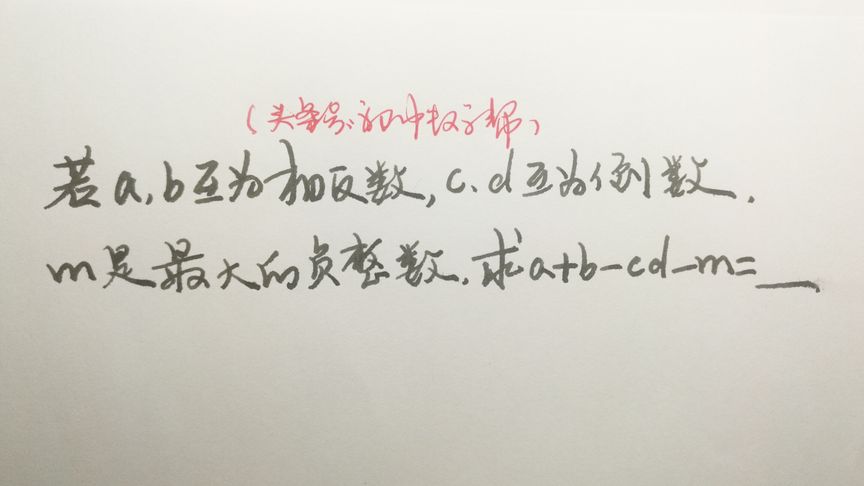 (头条号:初中数学帮)
若a,b互为相反数,c、d互为倒数.
m是最大的负整数.求a+b-cd-m=__